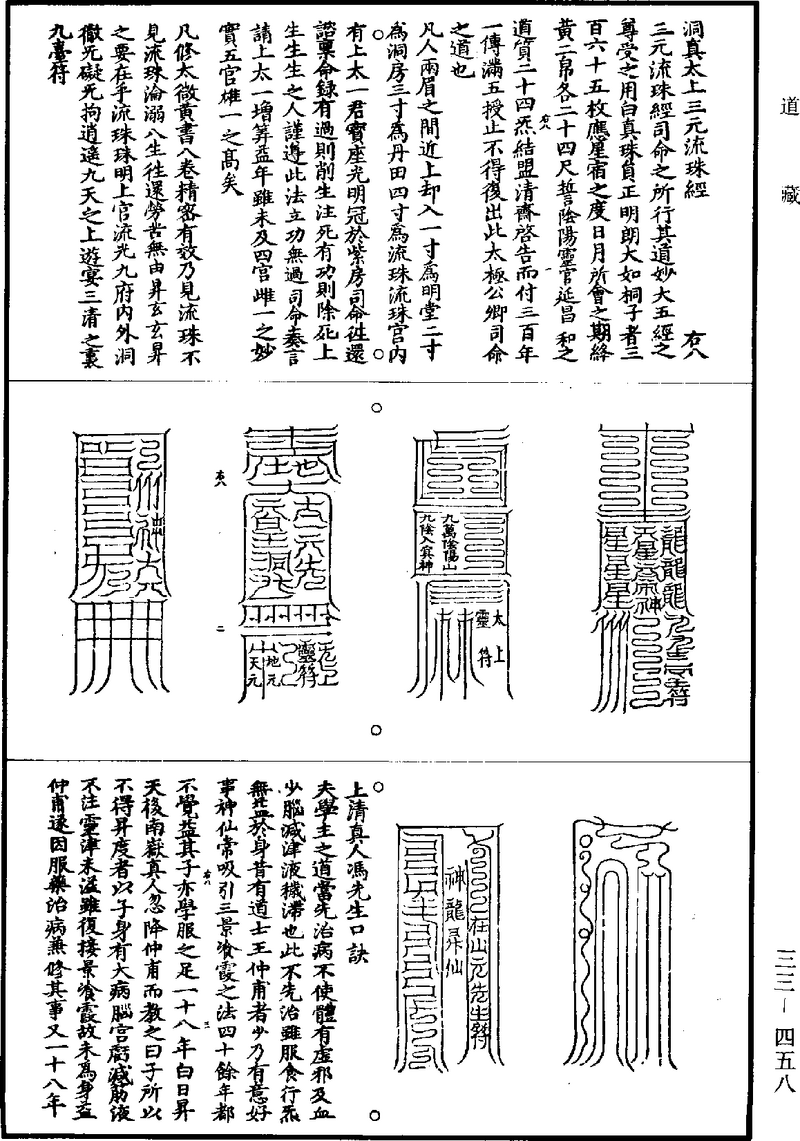 道藏
洞真太上三元流珠經
右八
三元流珠經司命之所行其道妙大五經之
尊受之用白真珠員正明朗大如桐子者三
百六十五枚應星宿之度日月所會之期絳
黃二帛各二十四尺誓陰陽靈官延昌和之
道質二十四炁結盟清齋啓告而付三百年
右八
一
一傳滿五授止不得復出此太極公卿司命
之道也
凡人兩眉之間近上却入一寸爲明堂二寸
爲洞房三寸爲丹田四寸爲流珠流珠宮內
有上太一君寶座光明冠於紫房司命往還
諮稟命錄有過則削生注死有功則除死上
生生生之人謹遵此法立功無過司命奏言
請上太一增筭益年雖未及四宮雌一之妙
寶五官雄一之髙矣
凡修太微黃書八卷精密有效乃見流珠不
見流珠淪溺八生往還勞苦無由昇玄玄昇
之要在乎流珠珠明上官流光九府內外洞
徹死礙死拘逍遙九天之上遊宴三清之裏
九臺符
龍龍龍
星星星
九萬陰陽山
九陰入冥神
太上
靈符
靈符
地元
天元
右八
二
神龍昇仙
在山元先生符
上清真人馮先生口訣
夫學生之道當先治病不使體有虛邪及血
少腦減津液穢滯也此不先治雖服食行炁
無益於身昔有道士王仲甫者少乃有意好
事神仙常吸引三景飡霞之法四十餘年都
右八
三
不覺益其子亦學服之足一十八年白日昇
天後南嶽真人忽降仲甫而教之曰子所以
不得昇度者以子身有大病腦宮虧減筋液
不注靈津未溢雖復接景飡霞故未爲身益
仲甫遂因服藥治病兼修其事又一十八年
三三－四五八